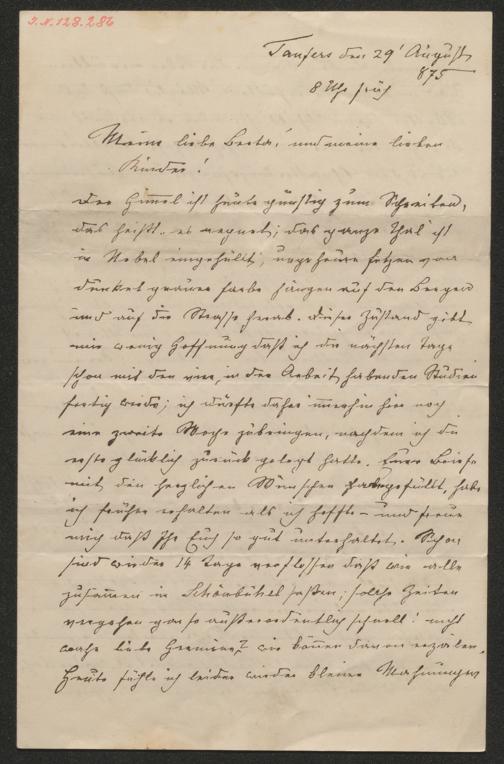 I.N. 128.286
Taufers den 29' August
875
8 Uhr früh
Meine liebe Berta! und meine lieben
Kinder!
Der Himmel ist heute günstig zum Schreiben,
das heißt.. es regnet; das ganze Thal ist
in Nebel eingehüllt, ungeheure Fetzen von
dunkel grauer Farbe hängen auf den Bergen
und auf die Strasse herab. Dieser Zustand gibt
mir wenig Hoffnung daß ich die nächsten Tage
schon mit den vier, in der Arbeit habenden Studien
fertig werde; ich dürfte daher immerhin hier noch
eine zweite Woche zubringen, nachdem ich die
erste glücklich zurück gelegt hatte. Eure Briefe
mit den herzlichen Wünschen gefüllt, habe
ich früher erhalten als ich hoffte – und freue
mich daß Ihr Euch so gut unterhaltet. Schon
sind wieder 14 Tage verflossen daß wir alle
zusammen in Schönbühel saßen; solche Zeiten
vergehen gar so außerordentlich schnell! nicht
wahr liebe Hermine? wir können davon erzälen.
Heute fühle ich leider wieder kleine Mahnungen